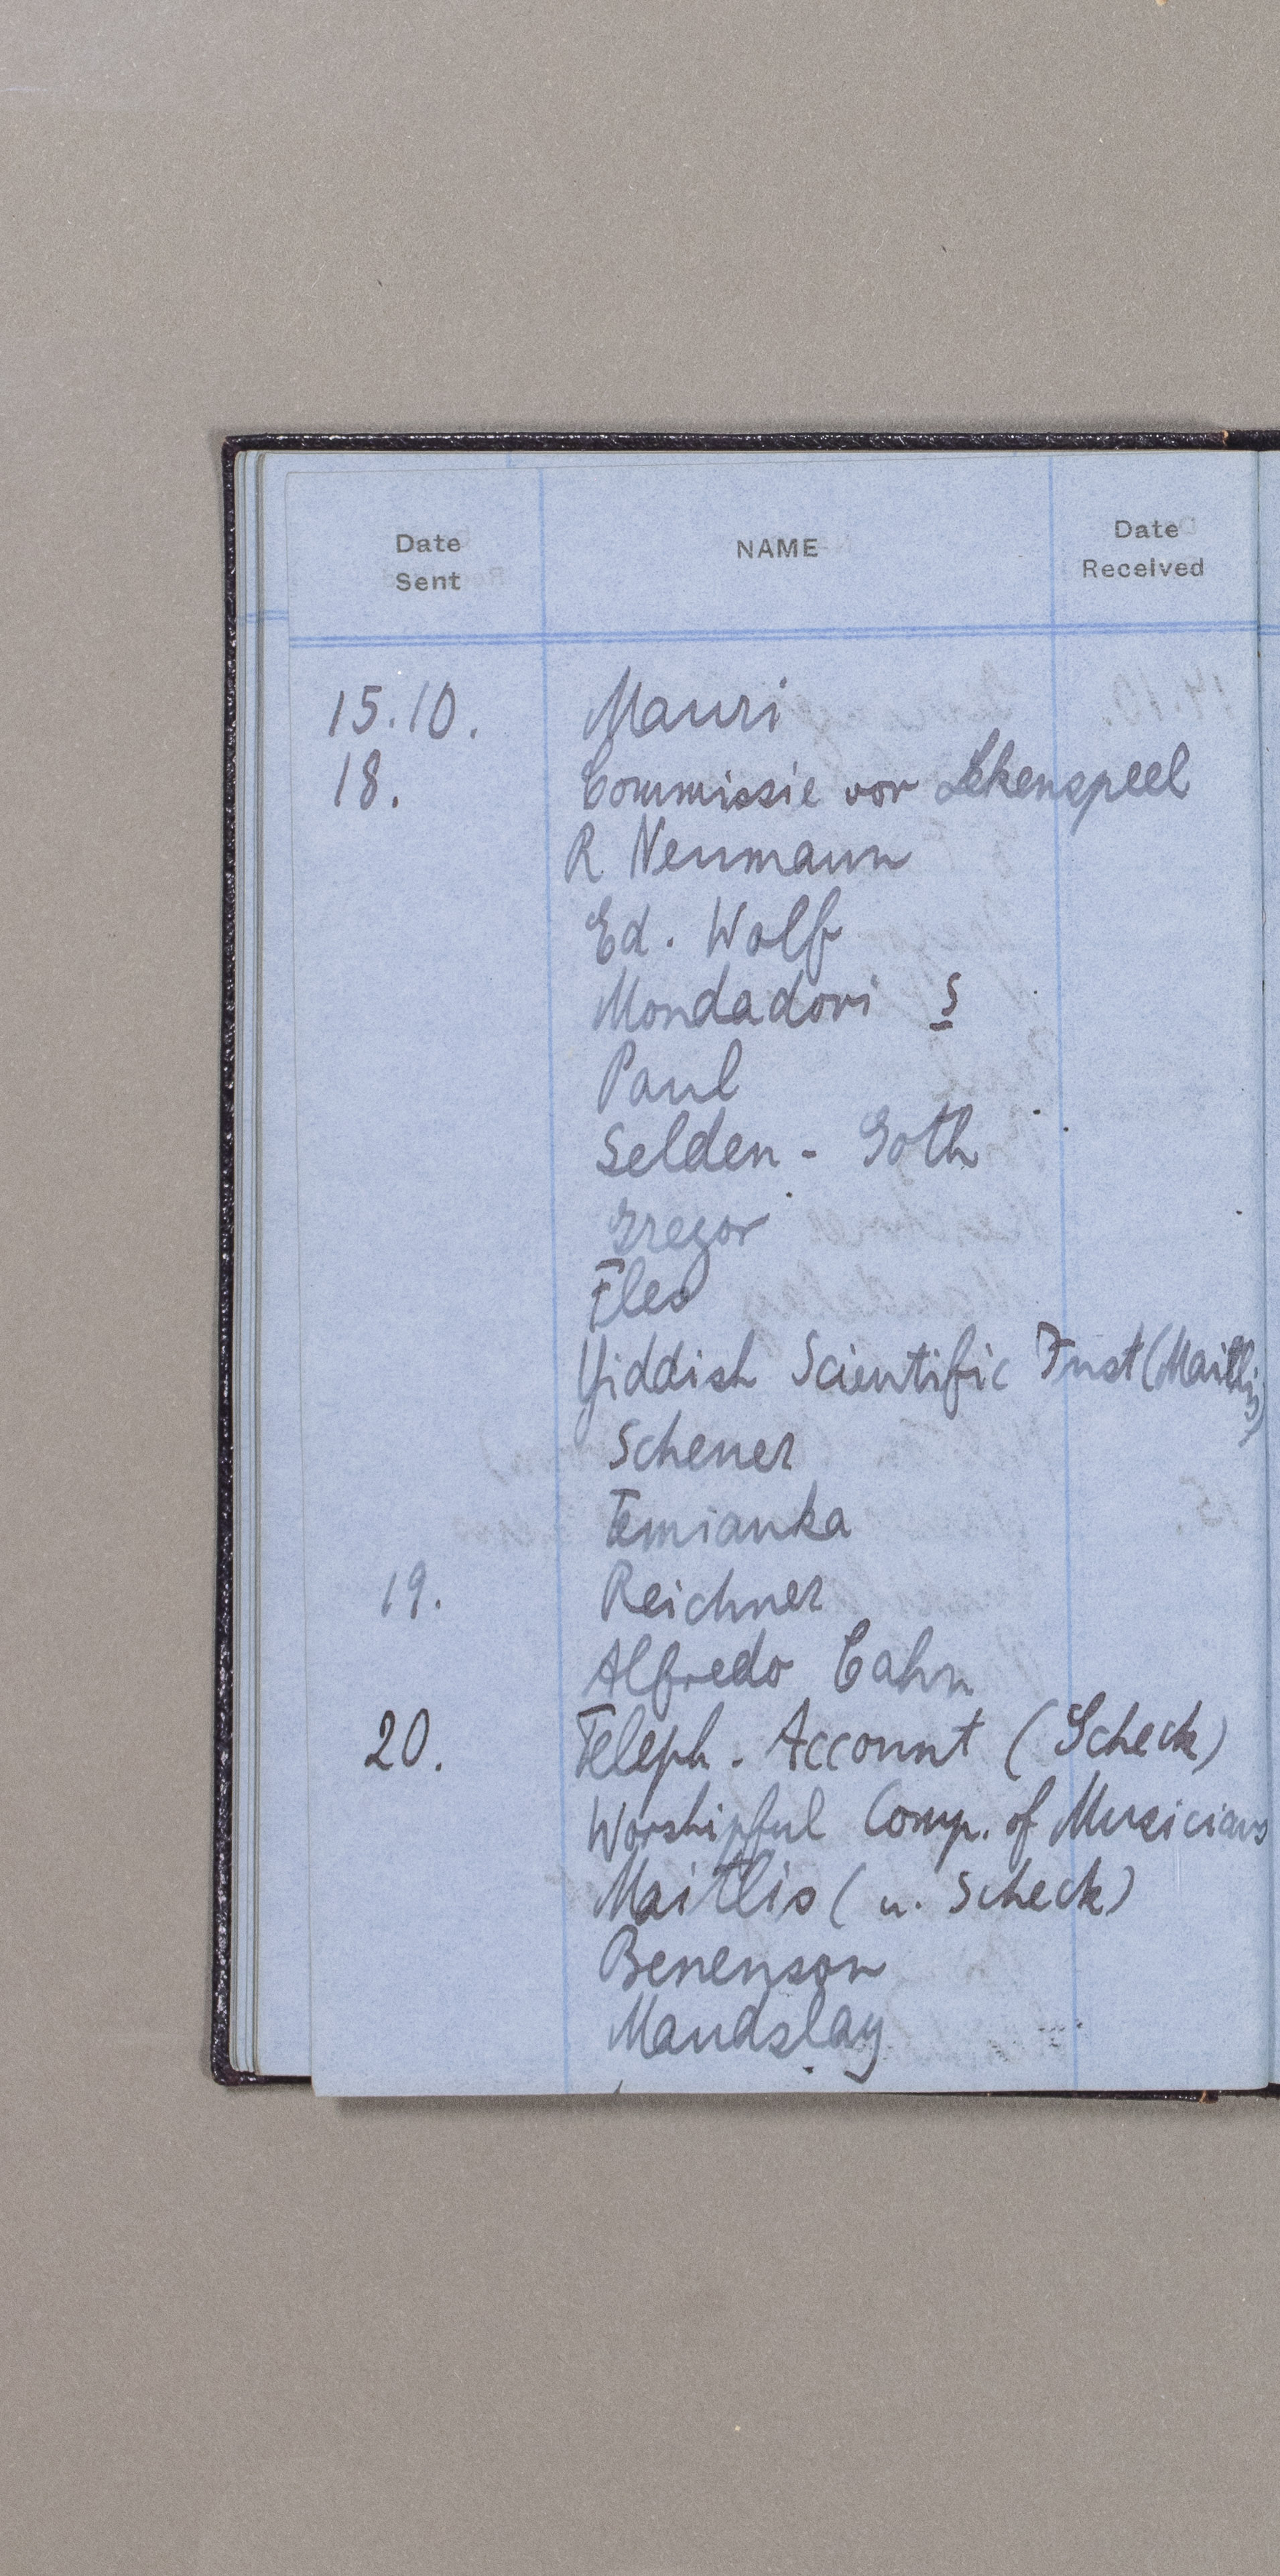 Date Sent NAME Date Received
15.10. Mauri
18. Commissie vor Lekenspeel
R Neumann
Ed. Wolf
Mondadori S
Paul
Selden - Goth
Gregor
Fles
Yiddish Scientific Inst (Maitlis)
Scheuer
Temianka
19. Reichner
Alfredo Cahn
20. Teleph. Account (Scheck)
Worshipful Comp. of Musicians
Maitlis (u. Scheck)
Benenson
Maudslay